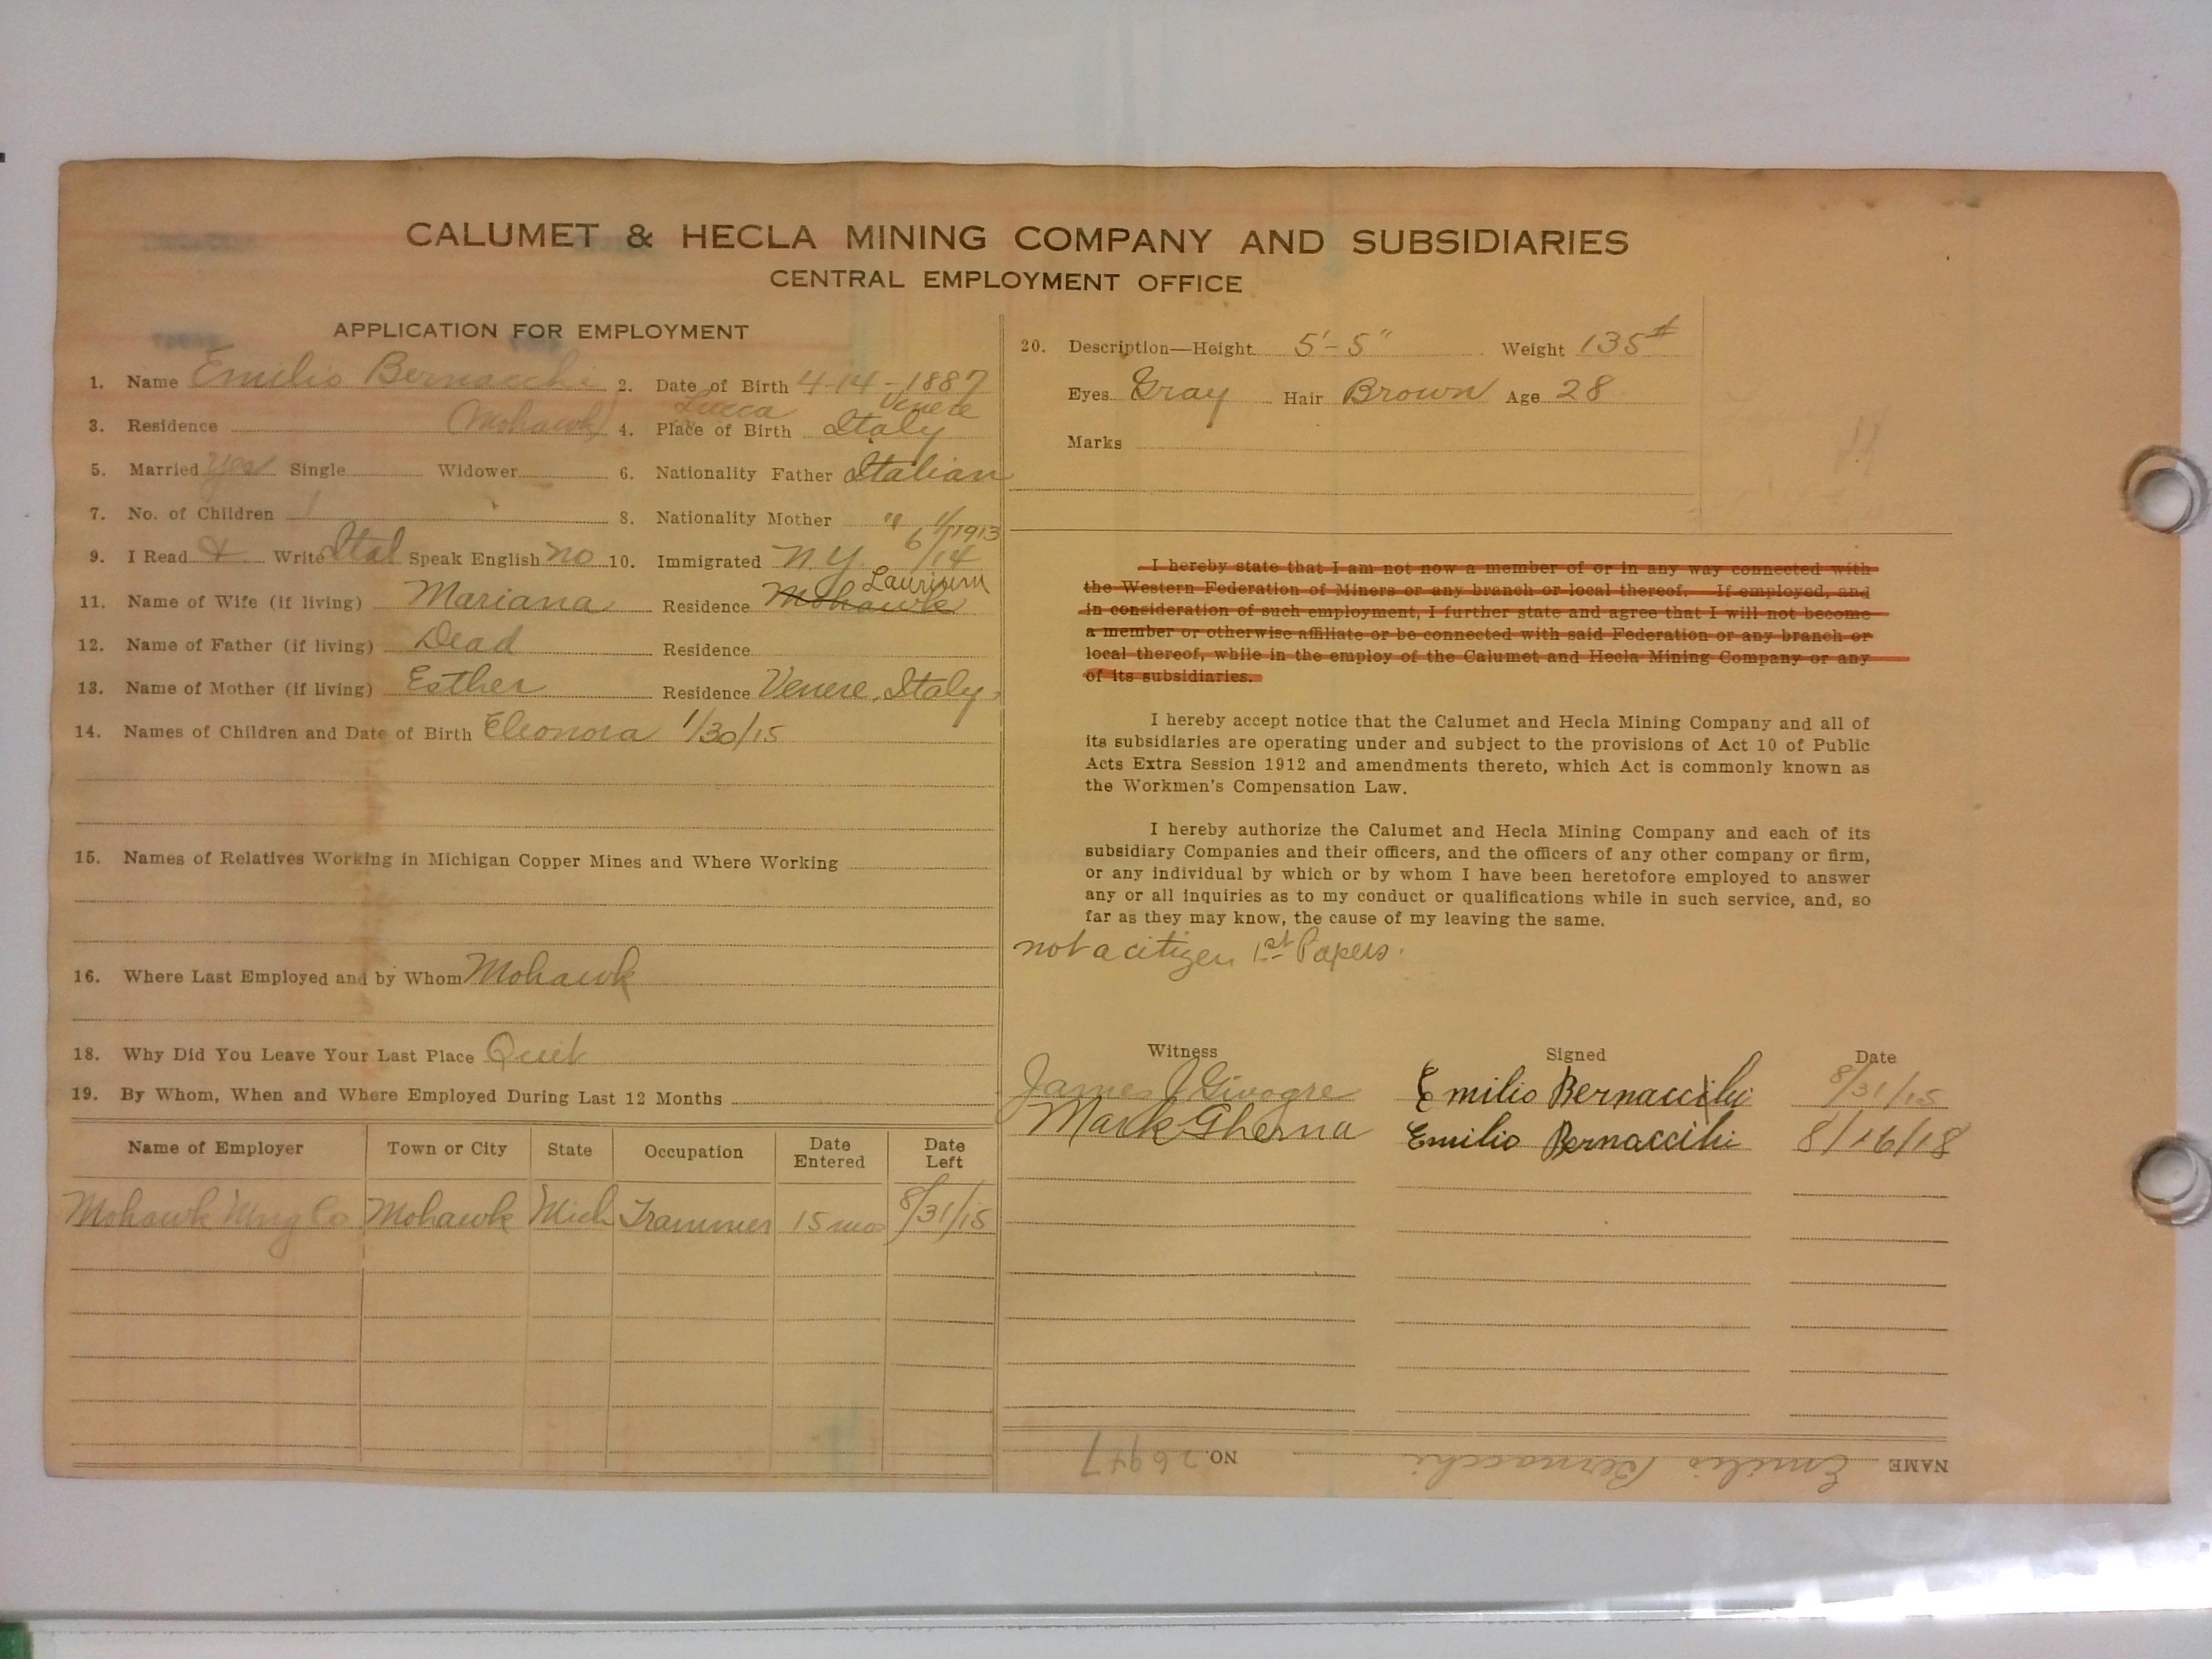 CALUMET & HECLA MINING COMPANY AND SUBSIDIARIES
CENTRAL EMPLOYMENT OFFICE
APPLICATION FOR EMPLOYMENT
1. Name Emilio Bernacchi 2. Date of Birth 4-14-1887
Lucca Venere
3. Residence Mohawk 4. Place of Birth Italy
5. Married yes Single Widower 6. Nationality Father Italian
7. No. of Children 1 8. Nationality Mother "
9. I Read & Write Ital Speak English no 10. Immigrated N.Y. 6/14 1/1913
11. Name of Wife (if living) Mariana Residence Mohawk Laurium
12. Name of Father (if living) Dead Residence
13. Name of Mother (if living) Esther Residence Venere, Italy
14. Names of Children and Date of Birth Eleonora 1/30/15
15. Names of Relatives Working in Michigan Copper Mines and Where Working
16. Where Last Employed and by Whom Mohawk
18. Why Did You Leave Your Last Place Quit
19. By Whom, When and Where Employed During Last 12 Months
Name of Employer Town or City State Occupation Date Entered Date Left
Mohawk Mng Co Mohawk Mich Trammer 15 mos 8/31/15
20. Description—Height 5'-5" Weight 135#
Eyes Gray Hair Brown Age 28
Marks
I hereby state that I am not now a member of or in any way connected with
the Western Federation of Miners or any branch or local thereof. If employed, and
in consideration of such employment, I further state and agree that I will not become
a member or otherwise affiliate or be connected with said Federation or any branch or
local thereof, while in the employ of the Calumet and Hecla Mining Company or any
of its subsidiaries.
I hereby accept notice that the Calumet and Hecla Mining Company and all of
its subsidiaries are operating under and subject to the provisions of Act 10 of Public
Acts Extra Session 1912 and amendments thereto, which Act is commonly known as
the Workmen's Compensation Law.
I hereby authorize the Calumet and Hecla Mining Company and each of its
subsidiary Companies and their officers, and the officers of any other company or firm,
or any individual by which or by whom I have been heretofore employed to answer
any or all inquiries as to my conduct or qualifications while in such service, and, so
far as they may know, the cause of my leaving the same.
not a citizen 1st Papers.
Witness Signed Date
James J Givogre Emilio Bernaccihi 8/31/15
Mark Gherna Emilio Bernaccihi 8/16/18
NAME Emilio Bernacchi NO. 26947